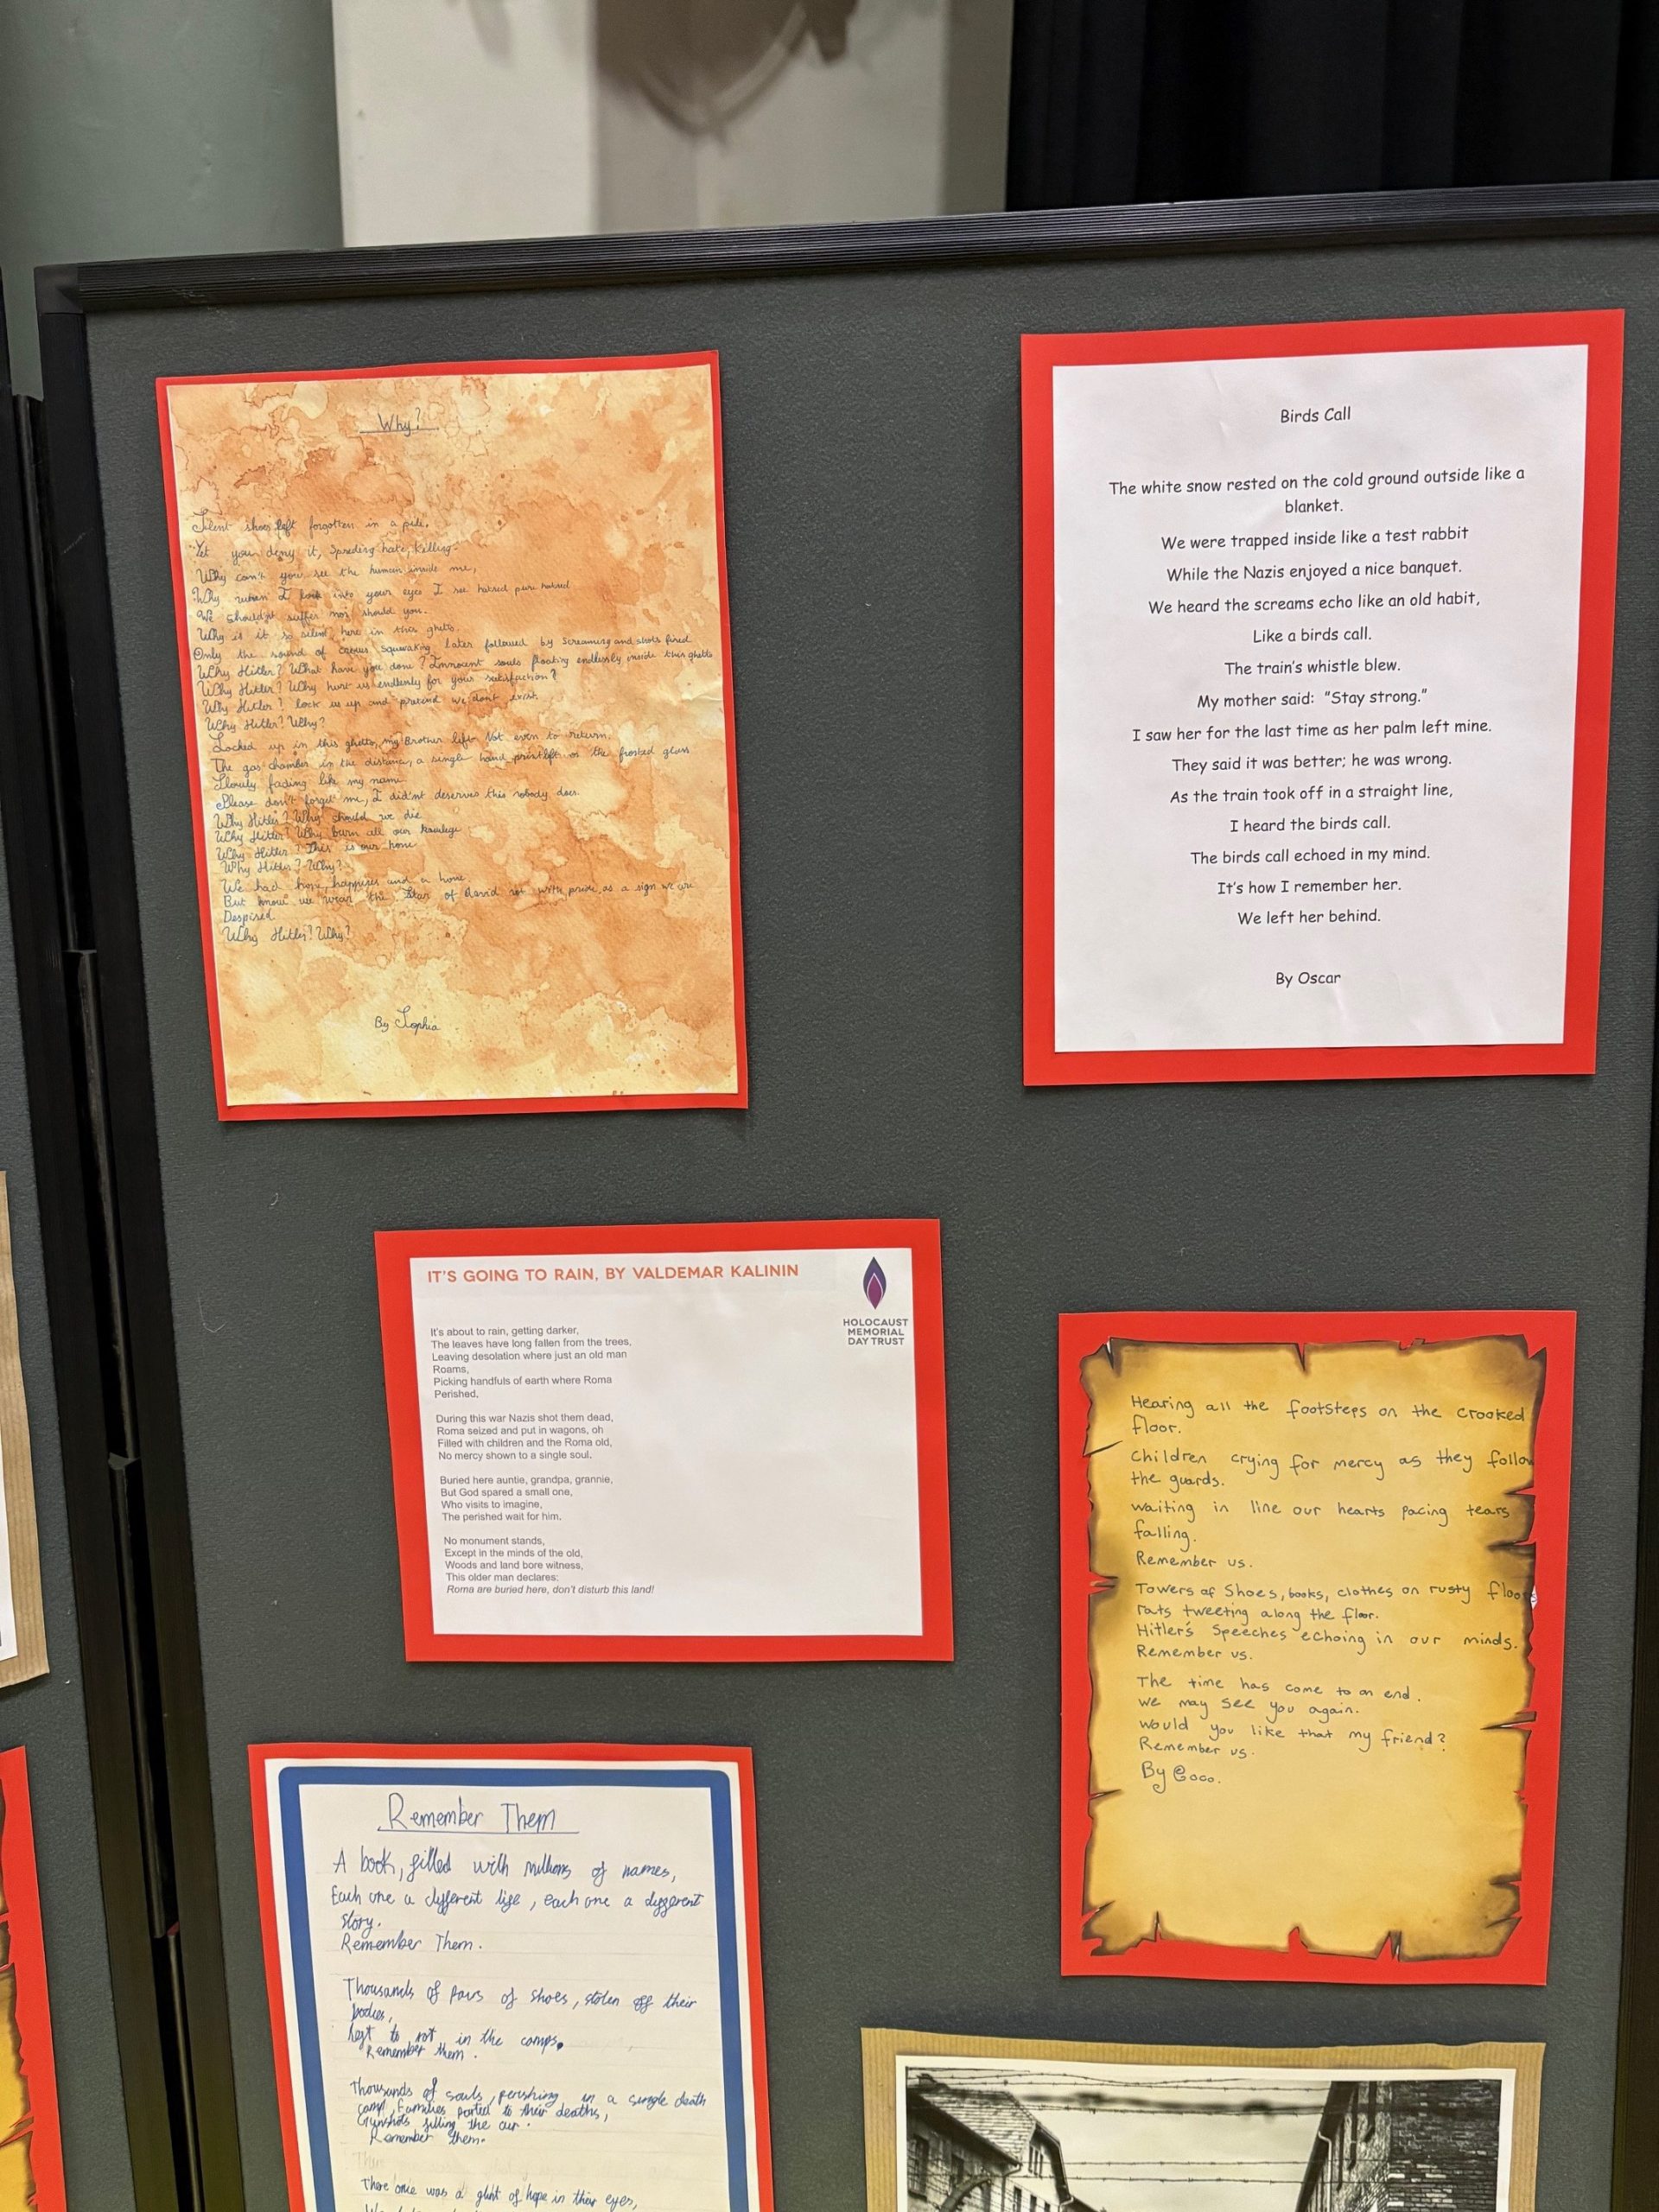 Why?
Silent shoes left forgotten in a pile.
Yet you deny it, Spreding hate, killing.
Why can't you see the human inside me,
Why when I look into your eyes I see hatred pure hatred
We shouldn't suffer nor should you.
Why is it so silent here in this ghetto.
Only the sound of crows squawking later followed by Screaming and shots fired
Why Hitler? What have you done? Innocent souls floating endlessly inside this ghetto
Why Hitler? Why hurt us endlessly for your satisfaction?
Why Hitler? lock us up and pretend we dont exist.
Why Hitler? Why?
Locked up in this ghetto, my Brother left Not even to return.
The gas chamber in the distance, a single hand print left on the frosted glass
Slowly fading like my name
Please don't forget me, I did'nt deserves this nobody does.
Why Hitler? Why should we die
Why Hitler? Why burn all our
Why Hitler? This is our home
Why Hitler? Why?
We had hope, happiness and a home
But know we wear the Star of David not with pride, as a sign we are
Despised
Why Hitler? Why?
By Sophia
Birds Call
The white snow rested on the cold ground outside like a
blanket.
We were trapped inside like a test rabbit
While the Nazis enjoyed a nice banquet.
We heard the screams echo like an old habit,
Like a birds call.
The train's whistle blew.
My mother said: "Stay strong."
I saw her for the last time as her palm left mine.
They said it was better; he was wrong.
As the train took off in a straight line,
I heard the birds call.
The birds call echoed in my mind.
It's how I remember her.
We left her behind.
By Oscar
IT'S GOING TO RAIN, BY VALDEMAR KALININ
HOLOCAUST
MEMORIAL
DAY TRUST
It's about to rain, getting darker,
The leaves have long fallen from the trees,
Leaving desolation where just an old man
Roams,
Picking handfuls of earth where Roma
Perished.
During this war Nazis shot them dead,
Roma seized and put in wagons, oh
Filled with children and the Roma old,
No mercy shown to a single soul.
Buried here auntie, grandpa, grannie,
But God spared a small one,
Who visits to imagine,
The perished wait for him.
No monument stands,
Except in the minds of the old,
Woods and land bore witness,
This older man declares:
Roma are buried here, don't disturb this land!
Hearing all the footsteps on the crooked
floor.
Children crying for mercy as they follow
the guards.
waiting in line our hearts pacing tears
falling.
Remember us.
Towers of Shoes, books, clothes on rusty floo
rats tweeting along the floor.
Hitler's Speeches echoing in our minds.
Remember us.
The time has come to an end.
we may see you again.
would you like that my friend?
Remember us.
By Coco.
Remember Them
A book, filled with millions of names,
Each one a different life, each one a different
story.
Remember Them.
Thousands of pairs of shoes, stolen off their
bodies,
left to rot in the camps.
Remember them.
Thousands of souls, perishing in a single death
camp, Families parted to their deaths,
Gunshots filling the air.
Remember them.
There once was a glint of hope in their eyes,